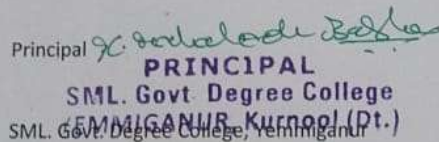 Principal
PRINCIPAL
SML. Govt. Degree College
YEMMIGANUR, Kurnool (Dt.)
SML. Govt. Degree College, Yemmiganur